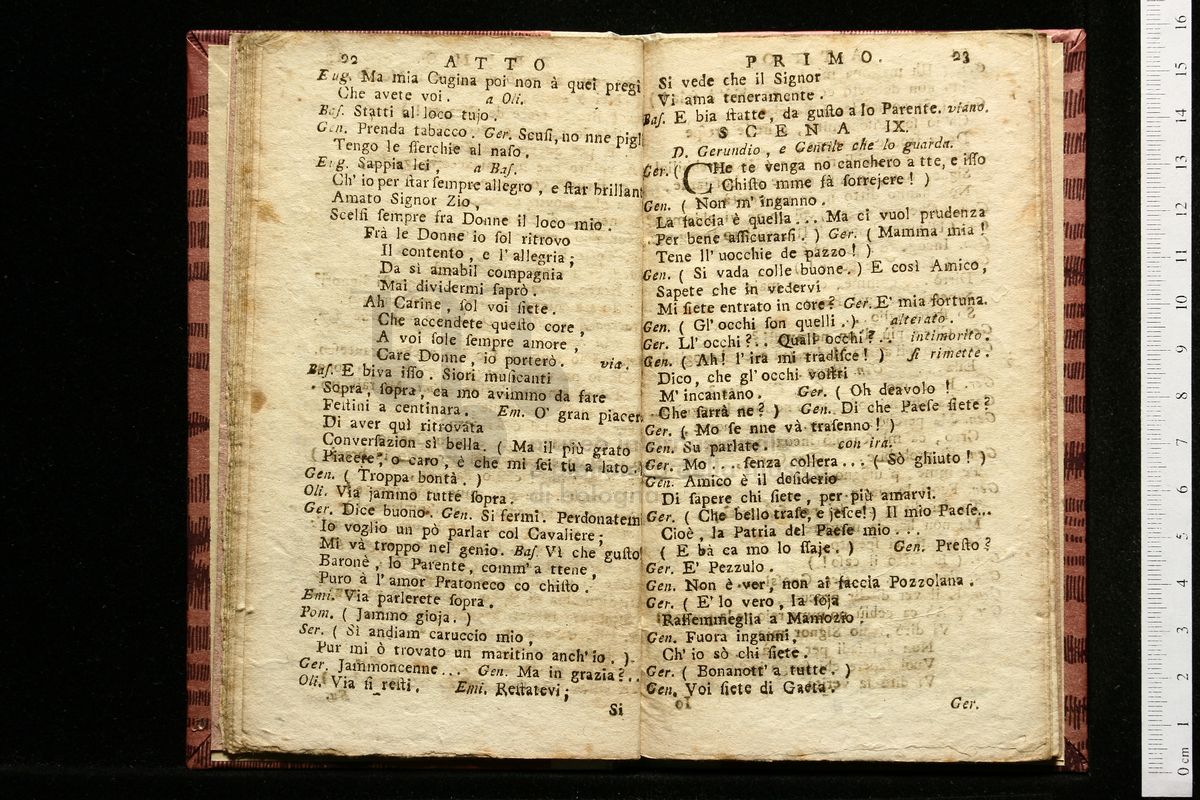 22 ATTO
Eug. Ma mia Cugina poi non à quei pregi
Che avete voi. a Oli.
Bas. Statti al loco tujo.
Gen. Prenda tabacco. Ger. Scusi, no nne pigl
Tengo le ſferchie al naſo.
Eug. Sappia lei, a Baſ.
Ch' io per ſtar ſempre allegro, e ſtar brillan
Amato Signor Zio,
Scelſi ſempre fra Donne il loco mio.
Frà le Donne io ſol ritrovo
Il contento, e l' allegria;
Da sì amabil compagnia
Mai dividermi ſaprò.
Ah Carine, ſol voi ſiete.
Che accendete queſto core,
A voi ſole ſempre amore,
Care Donne, io porterò. via.
Baſ. E biva iſſo. Siori muſicanti
Sopra, ſopra, ca mo avimmo da fare
Feſtini a centinara. Em. O' gran piacer
Di aver quì ritrovata
Converſazion sì bella. ( Ma il più grato
Piacere, o caro, è che mi ſei tu a lato.)
Gen. ( Troppa bontà. )
Oli. Via jammo tutte ſopra.
Ger. Dice buono. Gen. Si fermi. Perdonatem
Io voglio un pò parlar col Cavaliere;
Mi và troppo nel genio. Baſ. Vì che guſto
Baronè, lo Parente, comm' a ttene,
Puro à l' amor Pratoneco co chiſto.
Emi. Via parlerete ſopra.
Pom. ( Jammo gioja. )
Ser. ( Sì andiam caruccio mio,
Pur mi ò trovato un maritino anch' io. )
Ger. Jammoncenne... Gen. Ma in grazia?..
Oli. Via ſi reſti. Emi. Reſtatevi;
Si
PRIMO. 23
Si vede che il Signor
Vi ama teneramente.
Baſ. E bia ſtatte, da guſto a lo Parente. viano.
SCENA IX.
D. Gerundio, e Gentile che lo guarda.
Ger. ( CHe te venga no canchero a tte, e iſſo
Chiſto mme fà ſorrejere! )
Gen. ( Non m' inganno.
La faccia è quella... Ma ci vuol prudenza
Per bene aſſicurarſi. ) Ger. ( Mamma mia!
Tene ll' uocchie de pazzo! )
Gen. ( Si vada colle buone. ) E così Amico,
Sapete che in vedervi
Mi ſiete entrato in core? Ger. E' mia fortuna.
Gen. ( Gl' occhi ſon quelli. ) alterato.
Ger. Ll' occhi?.. Quali occhi?.. intimorito.
Gen. ( Ah! l' ira mi tradiſce! ) ſi rimette.
Dico, che gl' occhi voſtri
M' incantano. Ger. ( Oh deavolo!
Che ſarrà ne? ) Gen. Di che Paeſe ſiete?
Ger. ( Mo ſe nne và traſenno! )
Gen. Su parlate. con ira.
Ger. Mo... ſenza collera... ( Sò ghiuto! )
Gen. Amico è il deſiderio
Di ſapere chi ſiete, per più amarvi.
Ger. ( Che bello traſe, e jeſce!) Il mio Paeſe...
Cioè, la Patria del Paeſe mio...
( E bà ca mo lo ſſaje. ) Gen. Preſto?
Ger. E' Pezzulo.
Gen. Non è ver, non ai faccia Pozzolana.
Ger. ( E' lo vero, la ſoja
Raſſemmeglia a Mamozio.
Gen. Fuora inganni,
Ch' io sò chi ſiete.
Ger. ( Bonanott' a tutte. )
Gen. Voi ſiete di Gaeta?
Ger.
0 cm 1 2 3 4 5 6 7 8 9 10 11 12 13 14 15 16